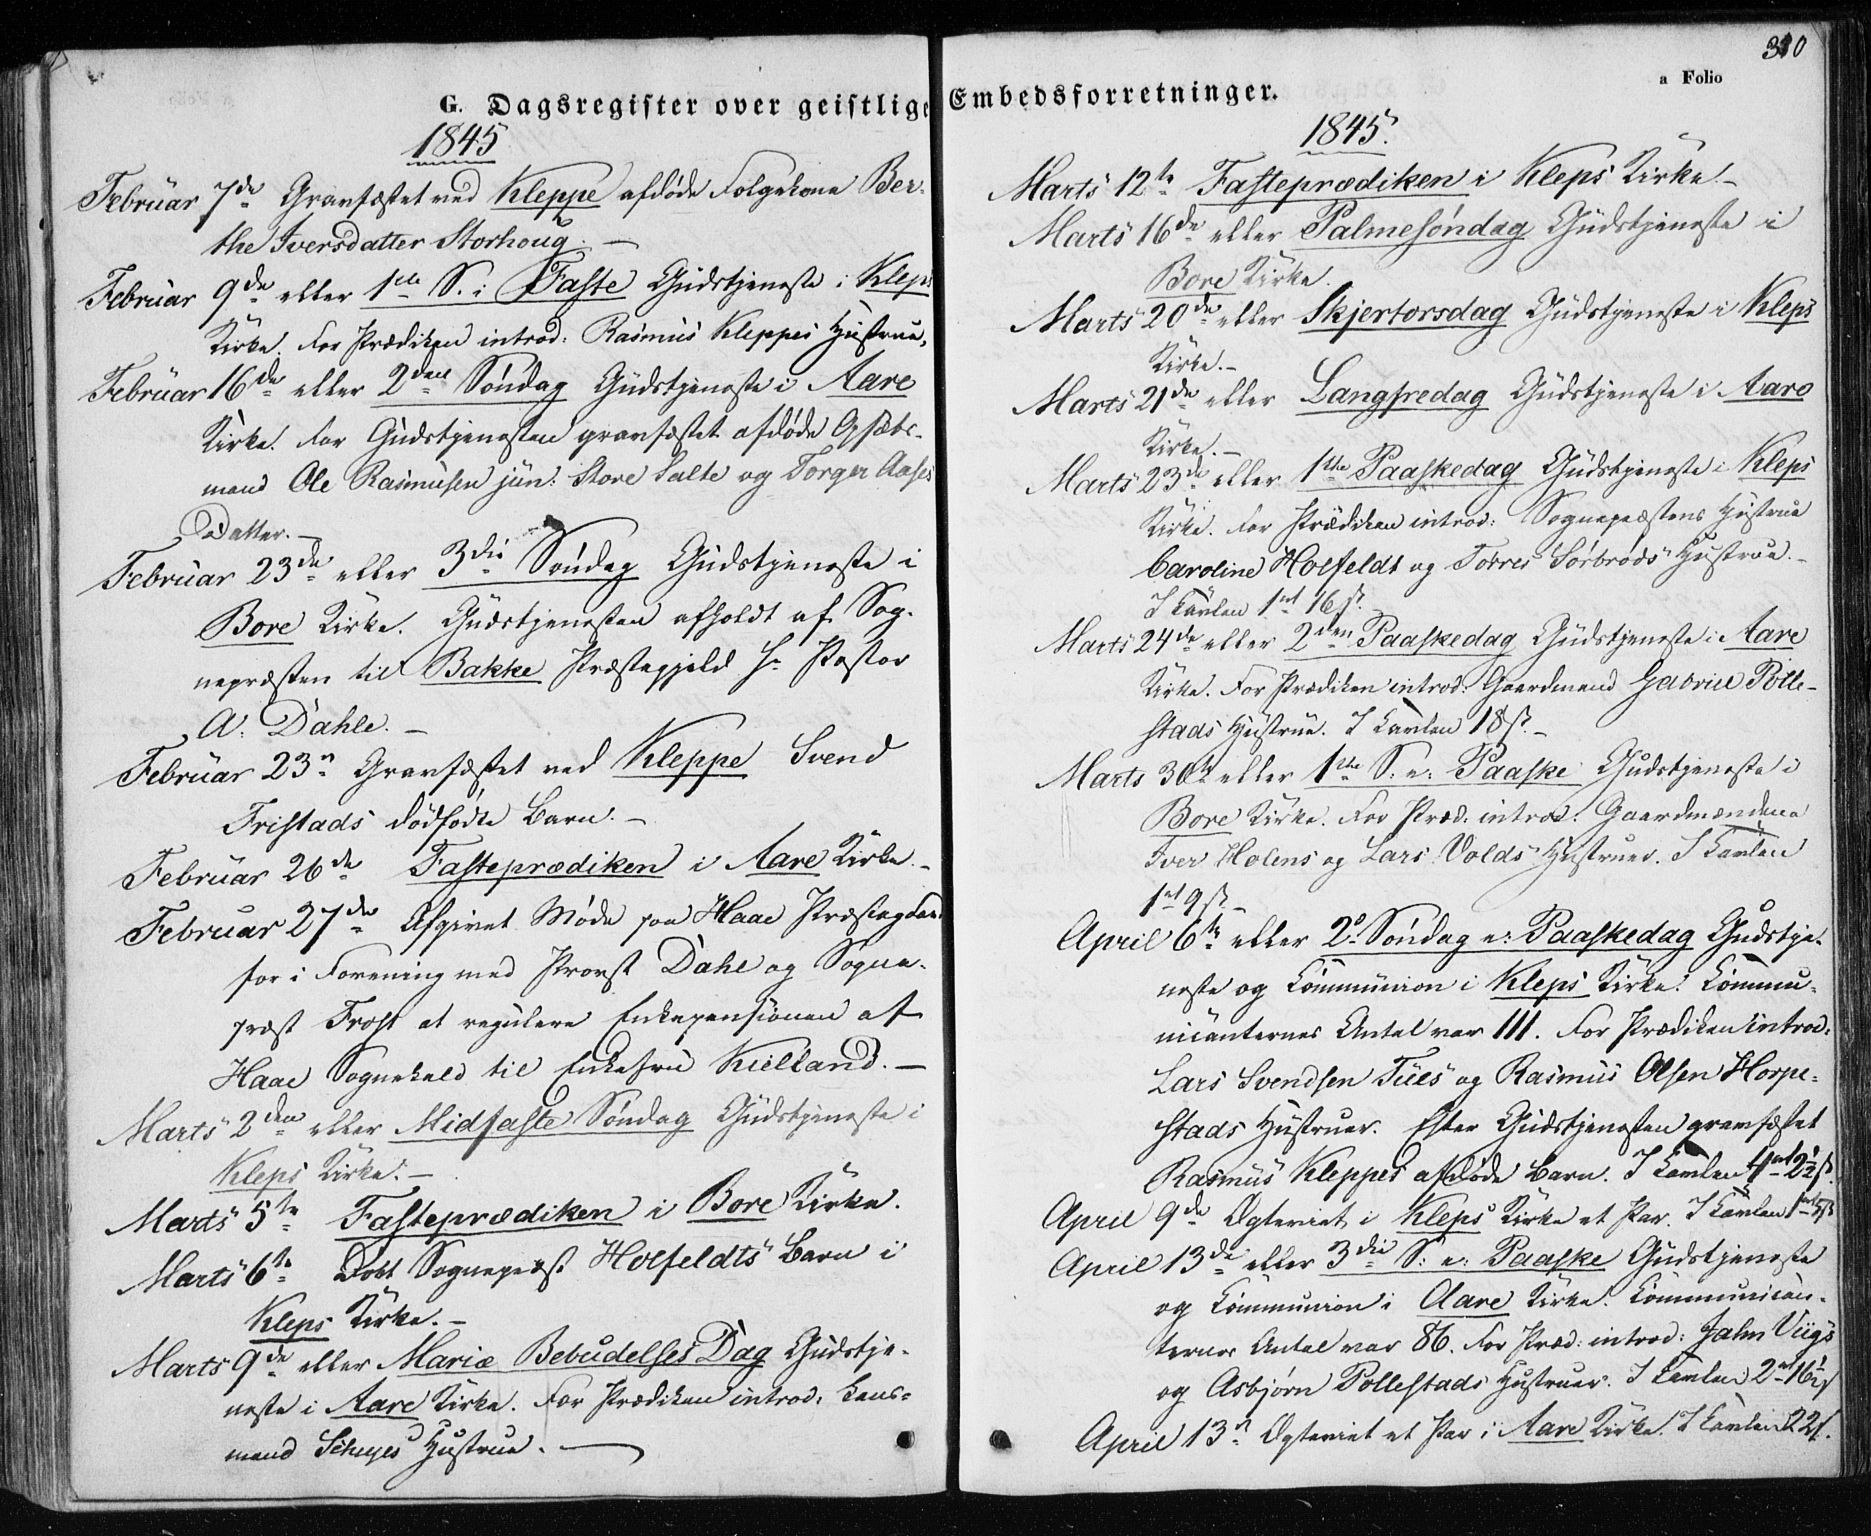 310
a Folio
G. Dagsregister over geistlige Embedsforretninger.
1845
Februar 7de Gravfæstet ved Kleppe afdøde Folgekone Ber-
the Iversdatter Storhoug. —
Februar 9de eller 1ste S. i Faste Gudstjeneste i Kleps
Kirke. For Prædiken introd: Rasmus Kleppes Hustrue.
Februar 16de eller 2den Søndag Gudstjeneste i Aare
Kirke. For Gudstjenesten gravfæstet afdøde Opsæts-
mand Ole Rasmusen jün: Store Salte og Torger Aases
Datter. —
Februar 23de eller 3die Søndag Gudstjeneste i
Bore Kirke. Gudstjenesten afholdt af Sog-
nepræsten til Bakke Præstegjeld Hr Pastor
A. Dahle. —
Februar 23n Gravfæstet ved Kleppe Svend
Fristads dødfødte Barn. —
Februar 26de Fasteprædiken i Aare Kirke. —
Februar 27de Afgivet Møde paa Haae Præstegaard
for i Forening med Provst Dahl og Sogne-
præst Frost at regulere Enkepensionen af
Haae Sognekald til Enkefru Kielland. —
Marts 2den eller Midfaste Søndag Gudstjeneste i
Kleps Kirke. —
Marts 5te Fasteprædiken i Bore Kirke.
Marts 6te Døbt Sognepræst Holfeldts Barn i
Kleps Kirke. —
Marts 9de eller Mariæ Bebudelses Dag Gudstje-
neste i Aare Kirke. For Prædiken introd: Lens-
mand Hustrue. —
1845.
Marts 12te Fasteprædiken i Kleps Kirke. —
Marts 16de eller Palmesøndag Gudstjeneste i
Bore Kirke.
Marts 20de eller Skjertorsdag Gudstjeneste i Kleps
Kirke. —
Marts 21de eller Langfredag Gudstjeneste i Aare
Kirke. —
Marts 23de eller 1ste Paaskedag Gudstjeneste i Kleps
Kirke. For Prædiken introd: Sognepræstens Hustrue
Caroline Holfeldt og Tørres Sørbrøds Hustrue. —
I Tavlen 1mk 16 ß.
Marts 24de eller 2den Paaskedag Gudstjeneste i Aare
Kirke. For Prædiken introd: Gaardmand Gabriel Polle-
stads Hustrue. I Tavlen 18 ß. —
Marts 30te eller 1ste S. e: Paaske Gudstjeneste i
Bore Kirke. For Præd. introd: Gaardmændene
Iver Holens og Lars Volds Hustruer. I Tavlen
1mk 9 ß. —
April 6te eller 2. Søndag e: Paaskedag Gudstje-
neste og Communion i Kleps Kirke. Commu-
nicanternes Antal var 111. For Prædiken introd:
Lars Svendsen Tües og Rasmus Olsen Horpe-
stads Hustruer. Efter Gudstjenesten gravfæstet
Rasmus Kleppes afdøde Barn. I Tavlen 4mk 2½ ß.
April 9de Ægteviet i Kleps Kirke et Par. I Tavlen 1mk 5ß
April 13de eller 3die S: e: Paaske Gudstjeneste
og Communion i Aare Kirke. Communican-
ternes Antal var 86. For Præd: introd: Jahn Viigs
og Asbjørn Pollestads Hustruer. I Tavlen 2mk 16½ ß
April 13n Ægteviet et Par i Aare Kirke. I Tavlen 22 ß.